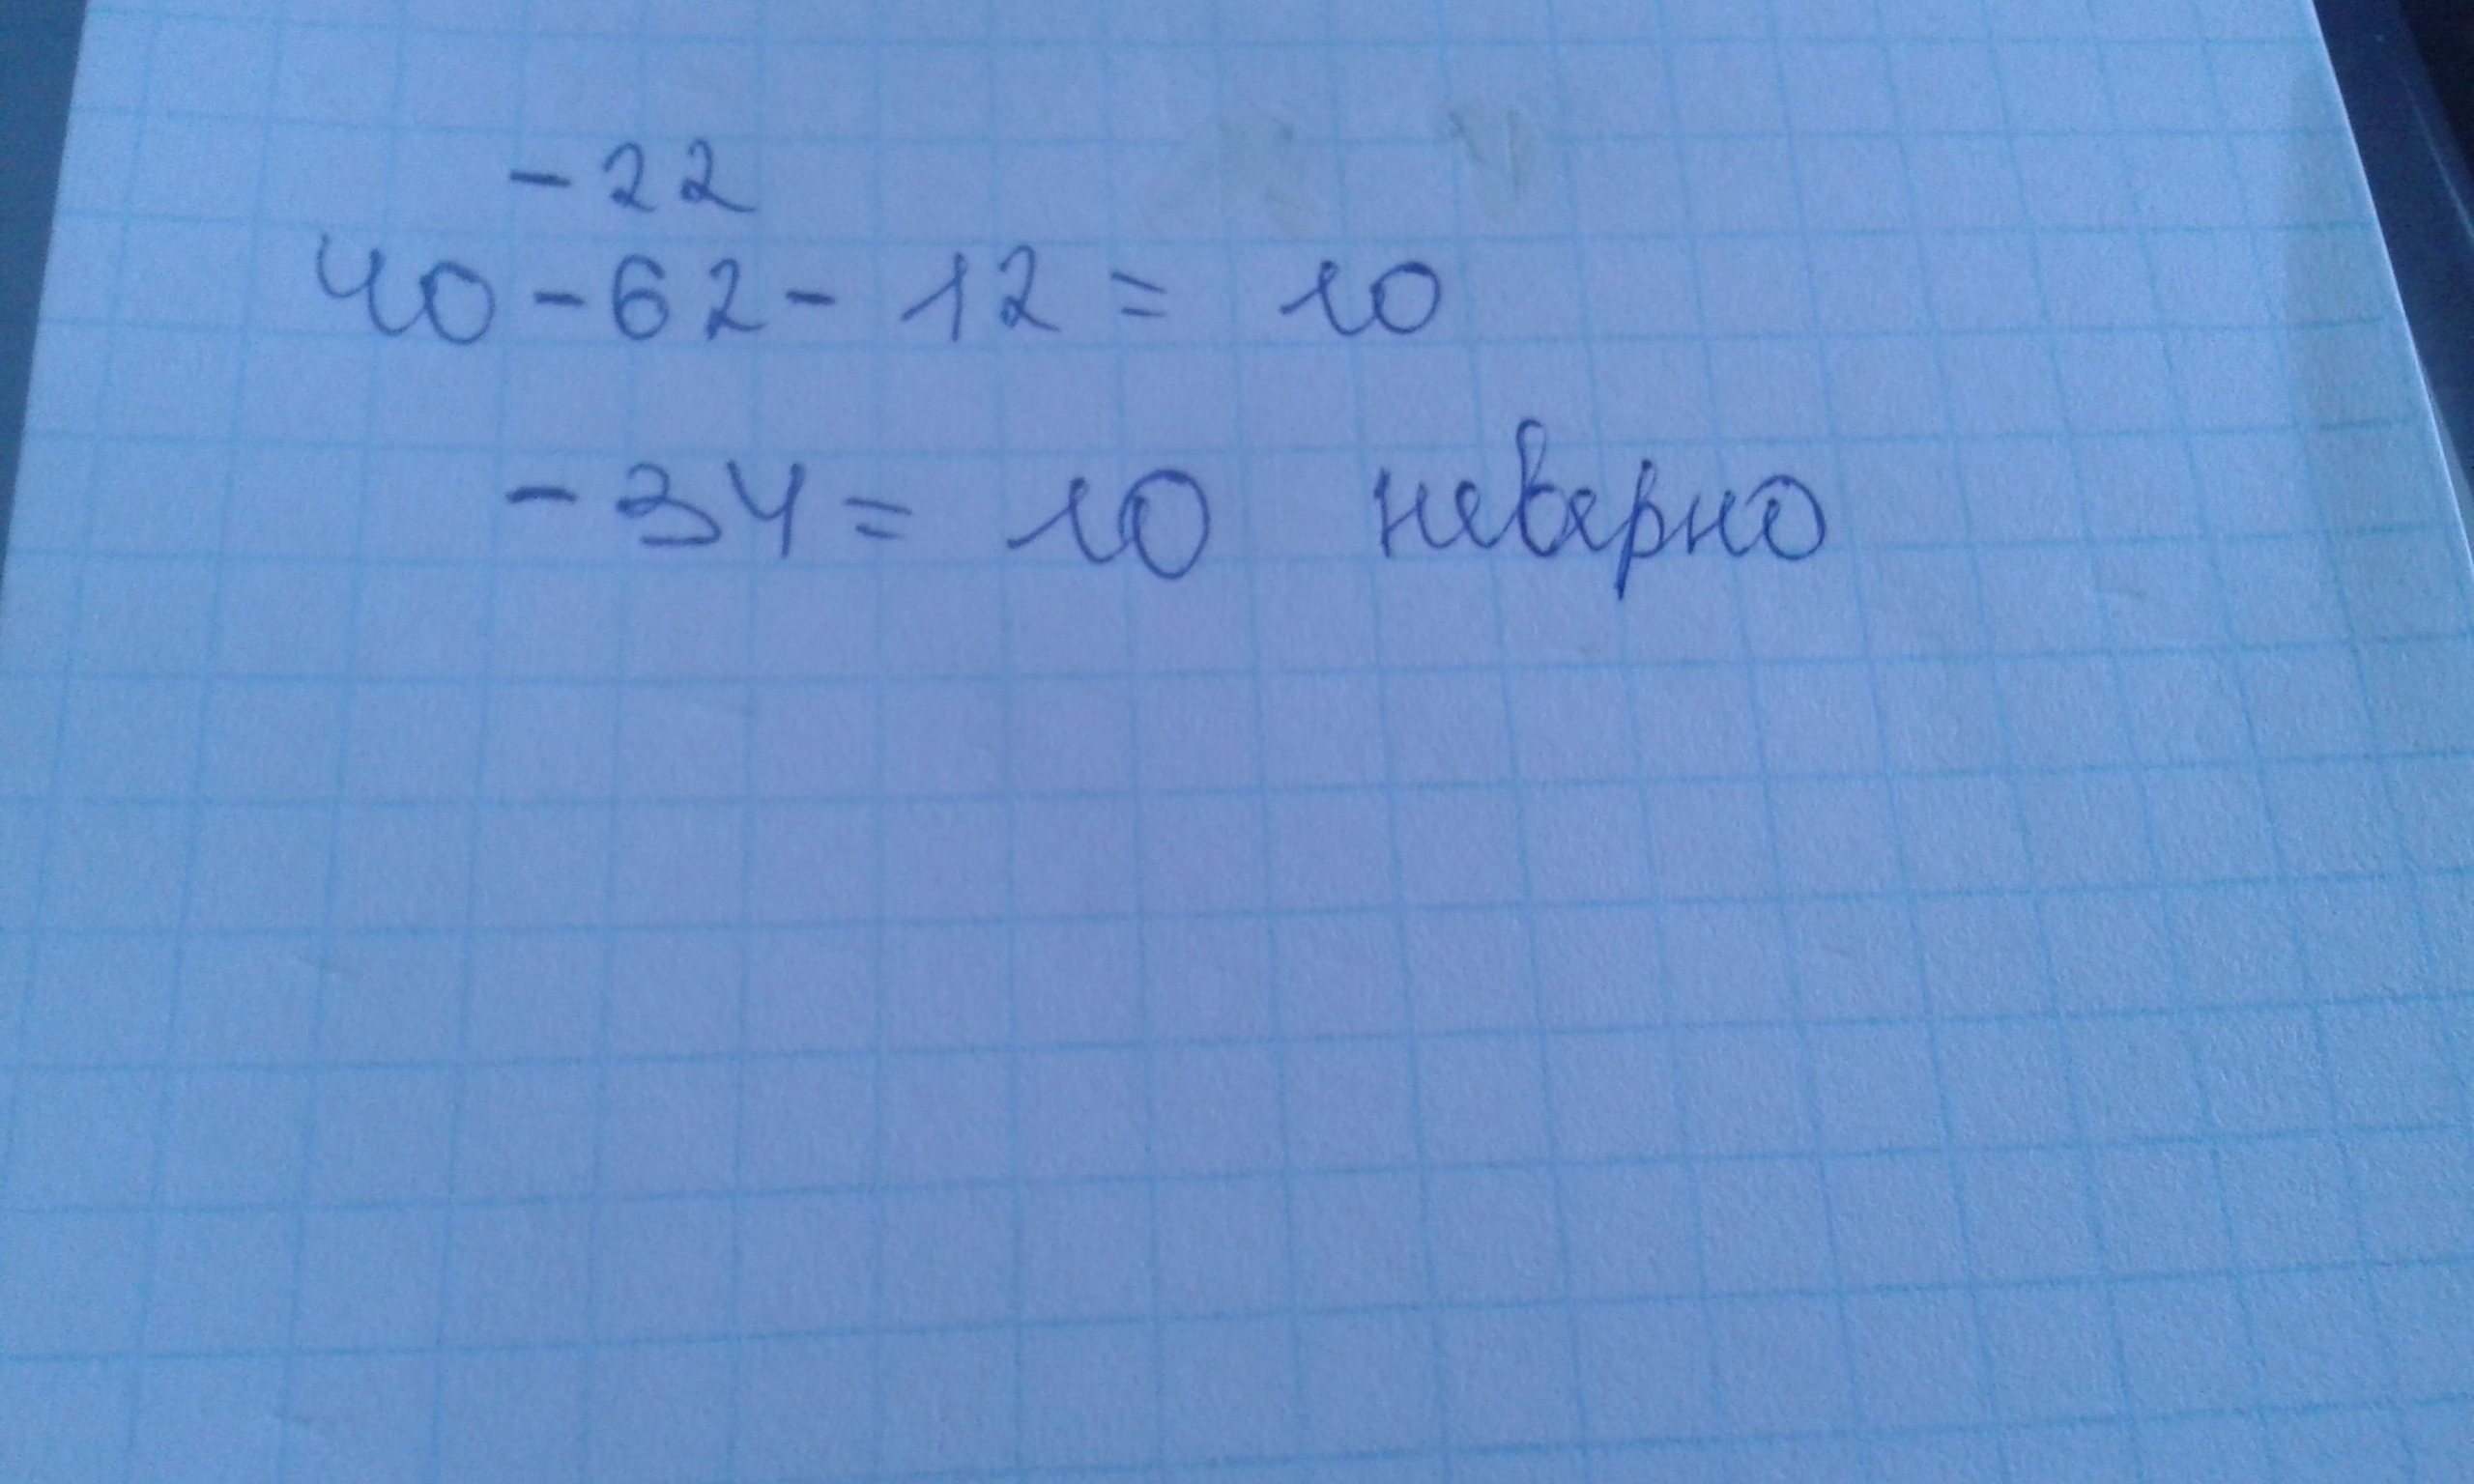 -22
40-62-12= 10
-34= 10 неверно